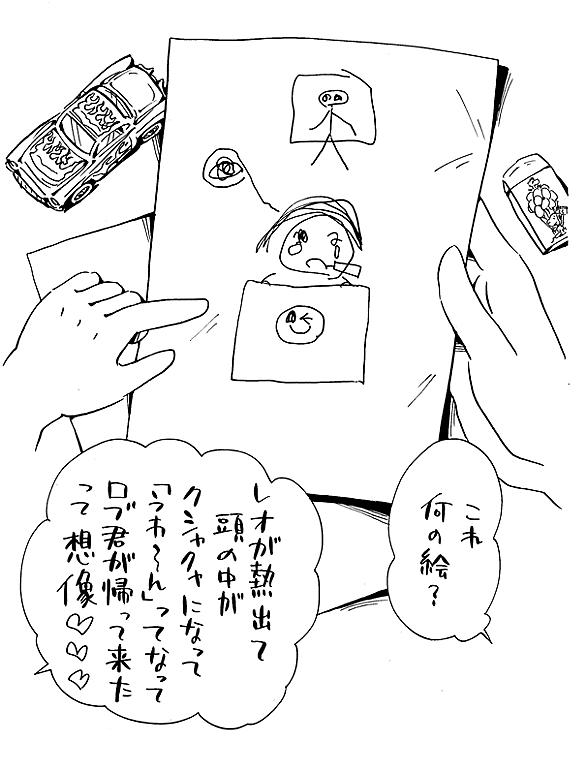 これ
何の絵？
レオが熱出て
頭の中が
クシャクシャになって
「うわ〜ん」ってなって
ロブ君が帰って来た
って想像♡♡♡